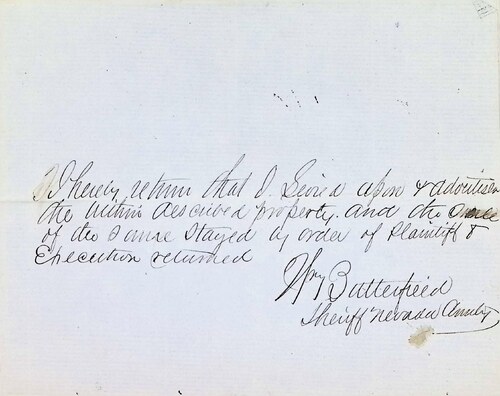 I hereby return that I Levied upon & advertised
the within described property and the Sale
of the Same Stayed by order of Plaintiff &
Execution returned
Wm Butterfield
Sheriff Nevada County